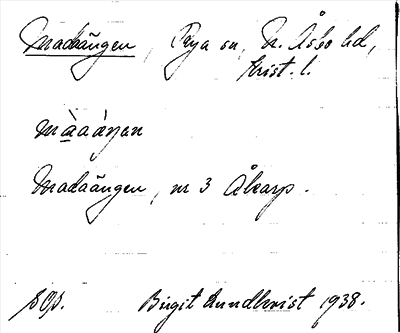 Madaängen, Rya sn, N. Åsbo hd,
Krist. l.
màaáŋen
Madaängen, nr 3 Åkarp.
Birgit Lundkvist 1938.